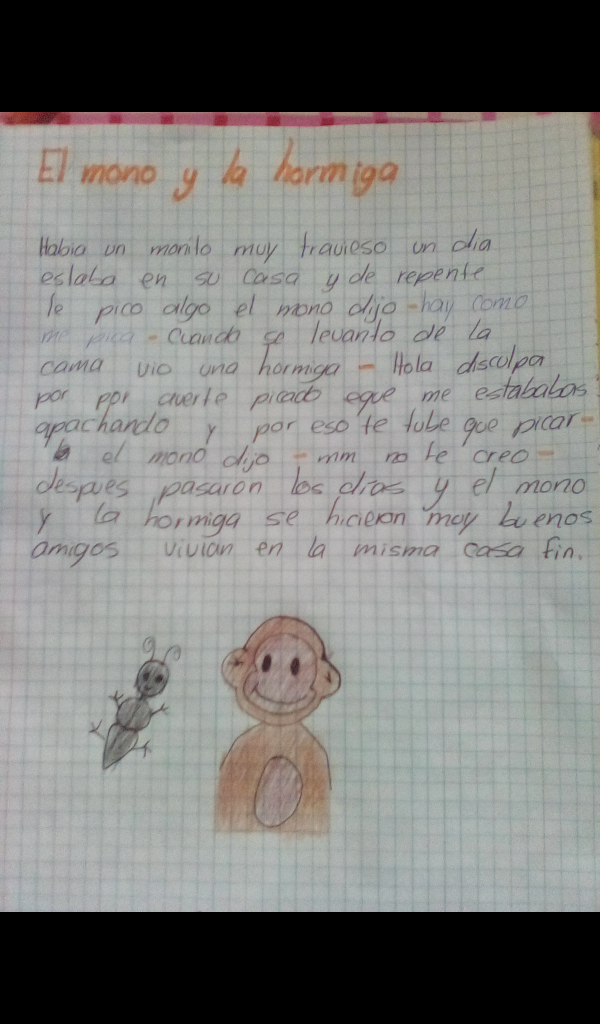 El mono y la hormiga
Habia un monito muy travieso un dia
estaba en su casa y de repente
le pico algo el mono dijo - hay como
me pica - Cuando se levanto de la
cama vio una hormiga - Hola disculpa
por por averte picado eque me estababas
apachando y por eso te tube que picar -
el mono dijo - mm no te creo -
despues pasaron los dias y el mono
y la hormiga se hicieron muy buenos
amigos vivian en la misma casa fin.